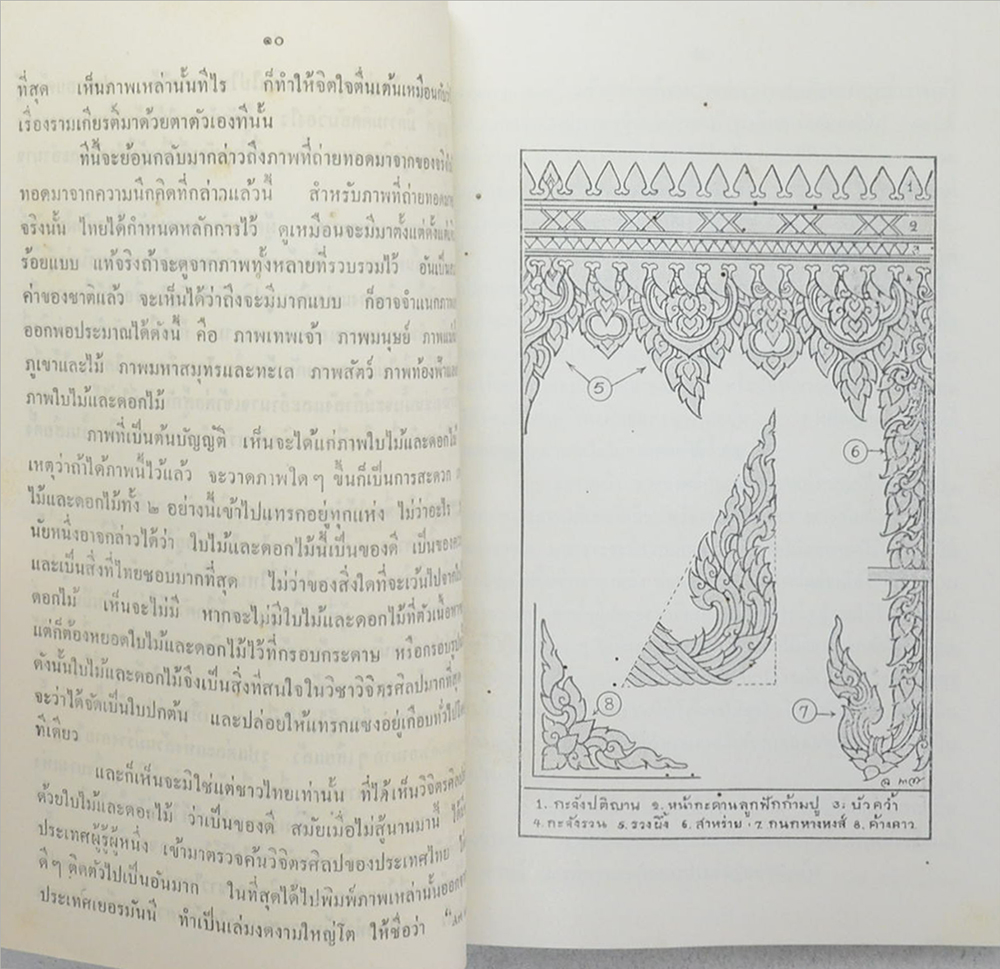 ๑๐
ที่สุด เห็นภาพเหล่านั้นทีไร ก็ทำให้จิตใจตื่นเต้นเหมือน
เรื่องรามเกียรติ์มาด้วยตาตัวเองทีนั้น
ทีนี้จะย้อนกลับมากล่าวถึงภาพที่ถ่ายทอดมาจากของจริง
ทอดมาจากความนึกคิดที่กล่าวแล้วนี้ สำหรับภาพที่ถ่ายทอด
จริงนั้น ไทยได้กำหนดหลักการไว้ ดูเหมือนจะมีมาตั้งแต่
ร้อยแบบ แท้จริงถ้าจะดูจากภาพทั้งหลายที่รวบรวมไว้ อันเป็น
ค่าของชาติแล้ว จะเห็นได้ว่าถึงจะมีมากแบบ ก็อาจจำแนกภาพ
ออกพอประมาณได้ดังนี้ คือ ภาพเทพเจ้า ภาพมนุษย์
ภูเขาและไม้ ภาพมหาสมุทรและทะเล ภาพสัตว์ ภาพท้องฟ้า
ภาพใบไม้และดอกไม้
ภาพที่เป็นต้นบัญญัติ เห็นจะได้แก่ภาพใบไม้และดอกไม้
เหตุว่าถ้าได้ภาพนี้ไว้แล้ว จะวาดภาพใด ๆ ขึ้นก็เป็นการสะดวก
ไม้และดอกไม้ทั้ง ๒ อย่างนี้เข้าไปแทรกอยู่ทุกแห่ง ไม่ว่าอะไร
นัยหนึ่งอาจกล่าวได้ว่า ใบไม้และดอกไม้นี้เป็นของดี เป็นของ
และเป็นสิ่งที่ไทยชอบมากที่สุด ไม่ว่าของสิ่งใดที่จะเว้นไปจาก
ดอกไม้ เห็นจะไม่มี หากจะไม่มีใบไม้และดอกไม้ที่ตัวเนื้อ
แต่ก็ต้องหยอดใบไม้และดอกไม้ไว้ที่กรอบกระดาษ หรือกรอบรูป
ดังนั้นใบไม้และดอกไม้จึงเป็นสิ่งที่สนใจในวิชาวิจิตรศิลปมากที่สุด
จะว่าได้จัดเป็นใบปกต้น และปล่อยให้แทรกแซงอยู่เกือบทั่วไป
ทีเดียว
และก็เห็นจะมิใช่แต่ชาวไทยเท่านั้น ที่ได้เห็นวิจิตรศิลป
ด้วยใบไม้และดอกไม้ ว่าเป็นของดี สมัยเมื่อไม่สู้นานมานี้
ประเทศผู้รู้ผู้หนึ่ง เข้ามาตรวจค้นวิจิตรศิลปของประเทศไทย
ดี ๆ ติดตัวไปเป็นอันมาก ในที่สุดได้ไปพิมพ์ภาพเหล่านั้นออก
ประเทศเยอรมันนี ทำเป็นเล่มงดงามใหญ่โต ให้ชื่อว่า
1
2
3
4
5
6
7
8
1. กะจังปติญาน ๒. หน้ากะดานลูกฟักก้ามปู ๓. บัวคว่ำ
๔. กะจังรวน ๕. รวงผึ้ง ๖. สาหร่าย ๗. กนกหางหงส์ ๘. ค้างคาว